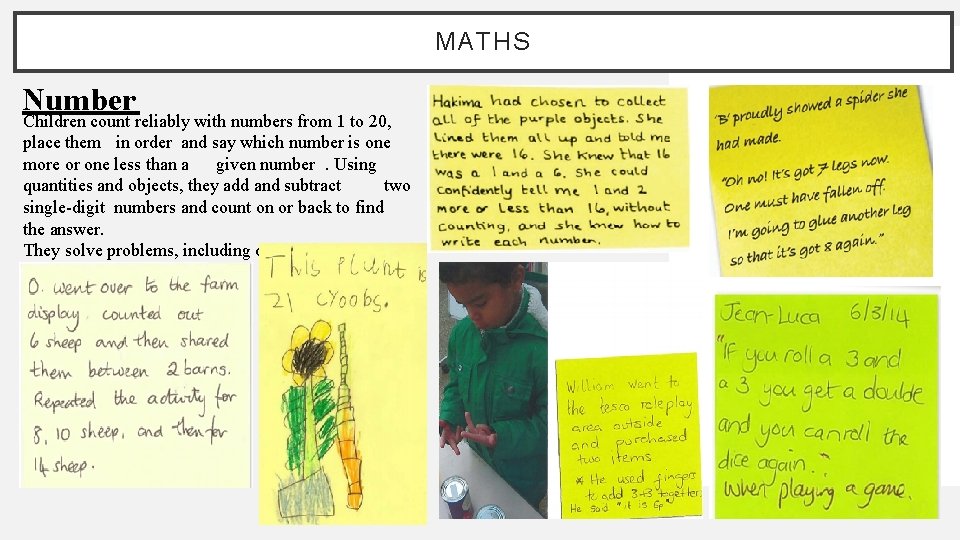 MATHS
Number
Children count reliably with numbers from 1 to 20,
place them in order and say which number is one
more or one less than a given number . Using
quantities and objects, they add and subtract two
single-digit numbers and count on or back to find
the answer.
They solve problems, including
Hakima had chosen to collect
all of the purple objects. She
lined them all up and told me
there were 16. She knew that 16
was a 1 and a 6. She could
confidently tell me 1 and 2
more or less than 16, without
counting, and she knew how to
write each number.
'B' proudly showed a spider she
had made.
"Oh no! It's got 7 legs now.
One must have fallen off.
I'm going to glue another leg
so that it's got 8 again."
O. went over to the farm
display, counted out
6 sheep and then shared
them between 2 barns.
Repeated the activity for
8, 10 sheep, and then for
14 sheep.
This plunt is
21 cyoobs.
William went to
the tesco roleplay
area outside
and purchased
two items
* He used fingers
to add 3+3 together.
He said "it is 6p"
Jean-Luca 6/3/14
"If you roll a 3 and
a 3 you get a double
and you can roll the
dice again."
When playing a game.